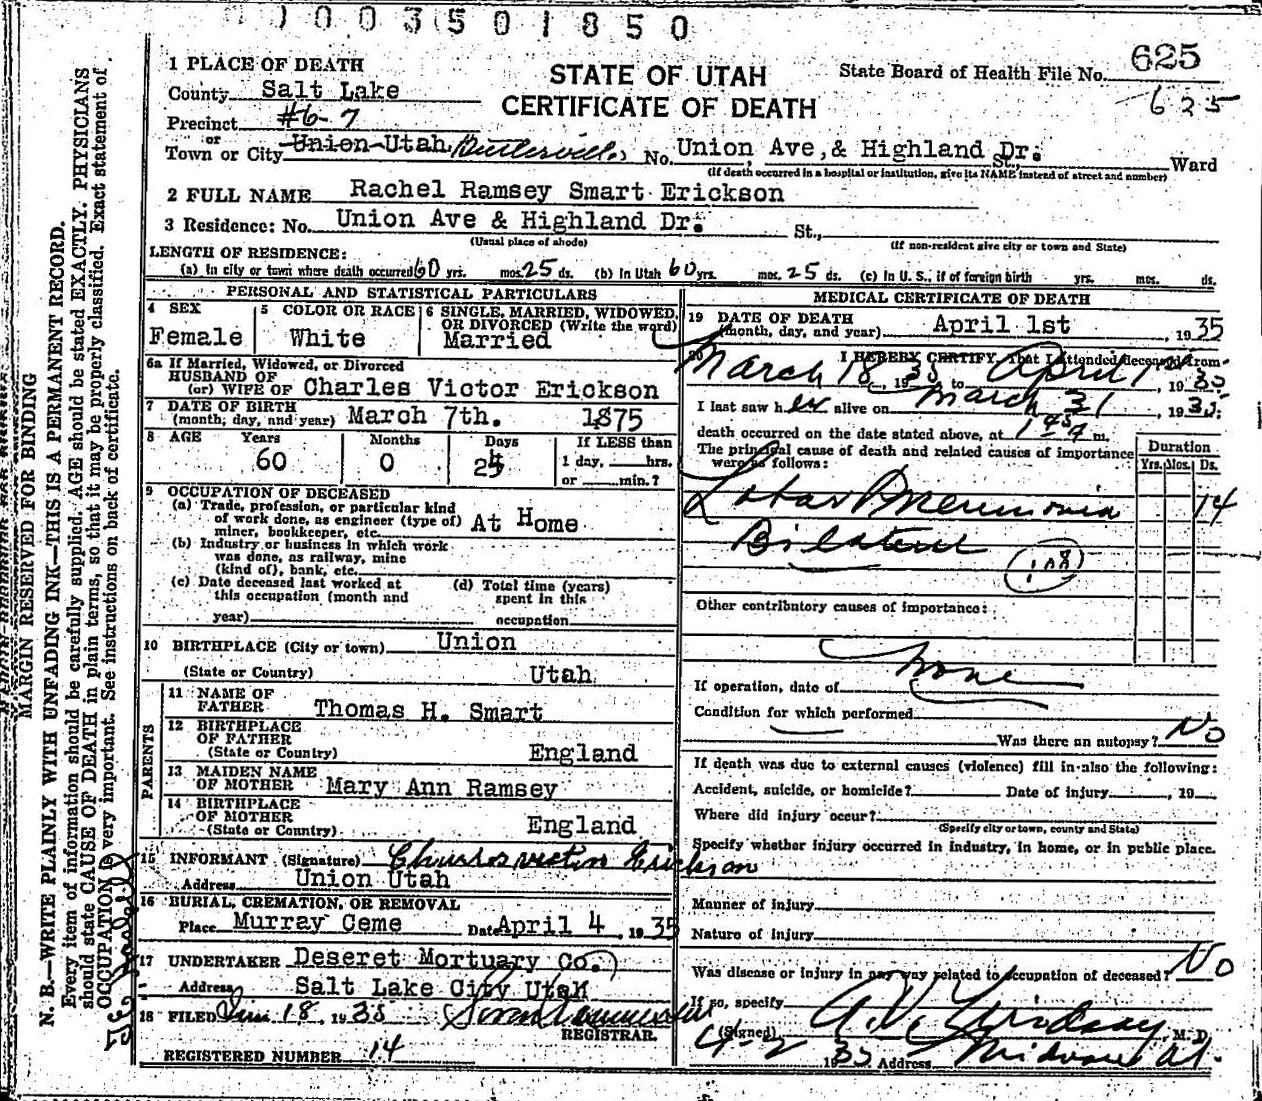 1003501850
1 PLACE OF DEATH
STATE OF UTAH
CERTIFICATE OF DEATH
State Board of Health File No. 625
625
County Salt Lake
Precinct #6-7
or
Town or City Union Utah Butlerville No. Union Ave, & Highland Dr. St., Ward
(If death occurred in a hospital or institution, give its NAME instead of street and number)
2 FULL NAME Rachel Ramsey Smart Erickson
3 Residence: No. Union Ave & Highland Dr. St.,
(Usual place of abode) (If non-resident give city or town and State)
LENGTH OF RESIDENCE:
(a) In city or town where death occurred 60 yrs. mos. 25 ds. (b) In Utah 60 yrs. mos. 25 ds. (c) In U. S., if of foreign birth yrs. mos. ds.
PERSONAL AND STATISTICAL PARTICULARS
4 SEX
Female
5 COLOR OR RACE
White
6 SINGLE, MARRIED, WIDOWED,
OR DIVORCED (Write the word)
Married
6a If Married, Widowed, or Divorced
HUSBAND OF
(or) WIFE OF Charles Victor Erickson
7 DATE OF BIRTH
(month, day, and year) March 7th. 1875
8 AGE Years Months Days If LESS than
60 0 25 1 day, hrs.
or min.?
9 OCCUPATION OF DECEASED
(a) Trade, profession, or particular kind
of work done, as engineer (type of) At Home
miner, bookkeeper, etc.
(b) Industry or business in which work
was done, as railway, mine
(kind of), bank, etc.
(c) Date deceased last worked at
this occupation (month and
year)
(d) Total time (years)
spent in this
occupation
10 BIRTHPLACE (City or town) Union
(State or Country) Utah
PARENTS
11 NAME OF
FATHER Thomas H. Smart
12 BIRTHPLACE
OF FATHER
(State or Country) England
13 MAIDEN NAME
OF MOTHER Mary Ann Ramsey
14 BIRTHPLACE
OF MOTHER
(State or Country) England
15 INFORMANT (Signature) Charles Victor Erickson
Address Union Utah
16 BURIAL, CREMATION, OR REMOVAL
Place Murray Ceme Date April 4, 1935
17 UNDERTAKER Deseret Mortuary Co.
Address Salt Lake City Utah
18 FILED 18, 1935
REGISTRAR.
REGISTERED NUMBER 14
MEDICAL CERTIFICATE OF DEATH
19 DATE OF DEATH
(month, day, and year) April 1st, 1935
20 I HEREBY CERTIFY, That I attended deceased from
March 18, 1935 to April 1st, 1935
I last saw her alive on March 31, 1935;
death occurred on the date stated above, at m.
The principal cause of death and related causes of importance
were as follows:
Duration
Yrs. Mos. Ds.
Lobar Pneumonia 14
Bilateral
108
Other contributory causes of importance:
None
If operation, date of
Condition for which performed
Was there an autopsy? No
If death was due to external causes (violence) fill in also the following:
Accident, suicide, or homicide? Date of injury , 19
Where did injury occur?
(Specify city or town, county and State)
Specify whether injury occurred in industry, in home, or in public place.
Manner of injury
Nature of injury
Was disease or injury in any way related to occupation of deceased? No
If so, specify
(Signed) A. V. Lindsay, M. D.
4-2 1935 Address Midvale Ut.
MARGIN RESERVED FOR BINDING
N. B.—WRITE PLAINLY WITH UNFADING INK—THIS IS A PERMANENT RECORD.
Every item of information should be carefully supplied. AGE should be stated EXACTLY. PHYSICIANS
should state CAUSE OF DEATH in plain terms, so that it may be properly classified. Exact statement of
OCCUPATION is very important. See instructions on back of certificate.